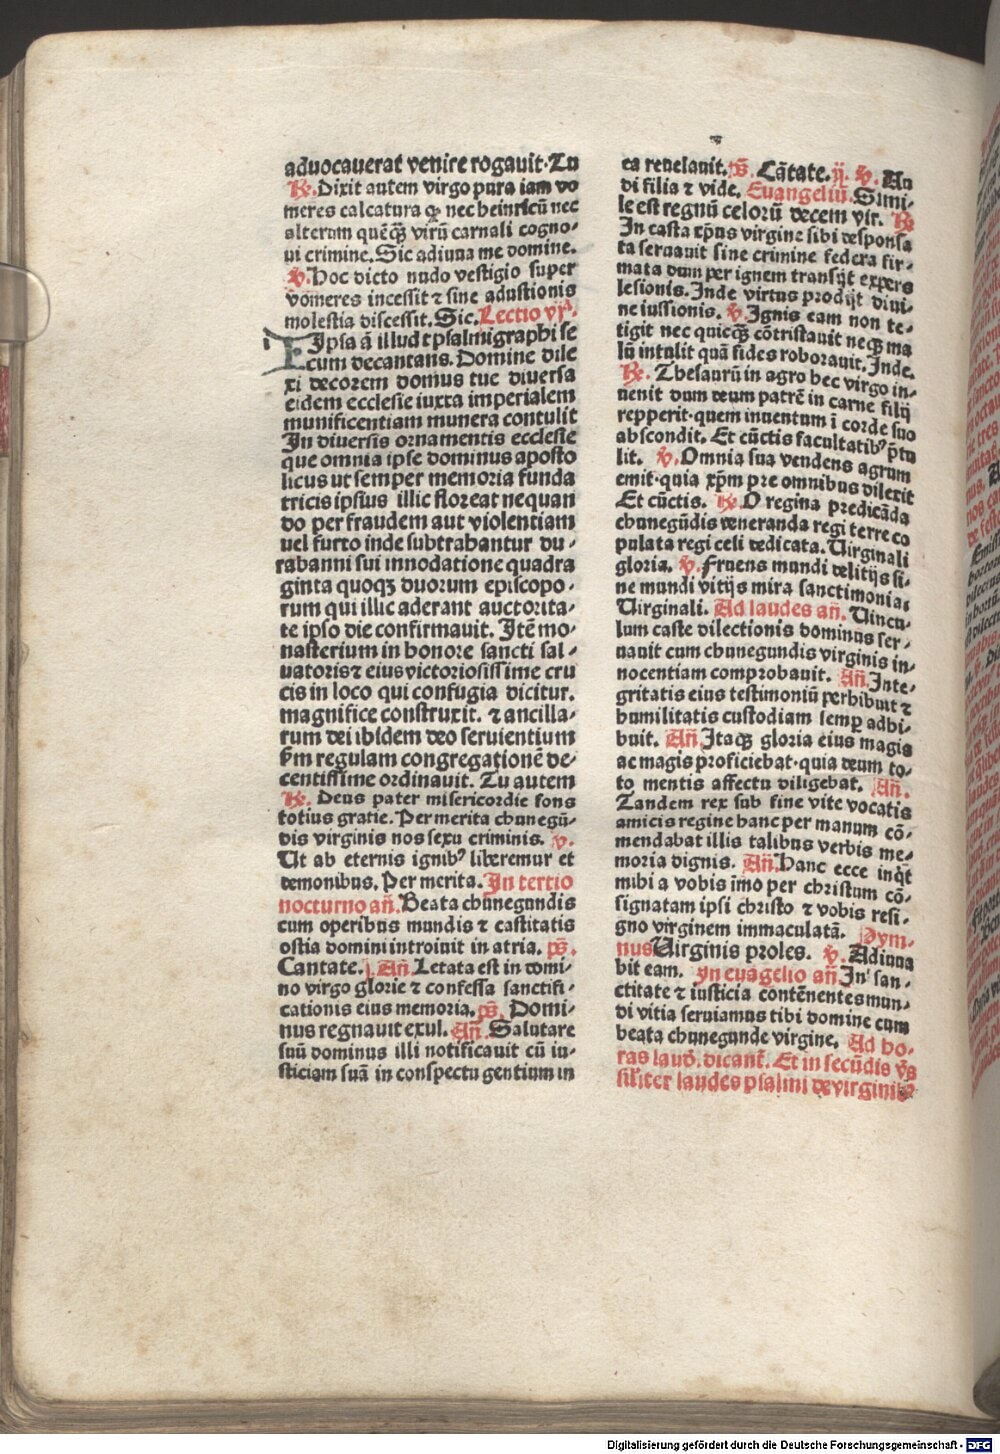 aduocauerat venire rogauit·Tu
℟. Dixit autem virgo pura iam vo
meres calcatura ꝙ nec heinricū nec
alterum quēcꝗ̃ virū carnali cogno-
ui crimine. Sic adiuua me domine.
℣. Hoc dicto nudo vestigio super
vomeres incessit ⁊ sine adustionis
molestia discessit. Sic. Lectio vjͣ.
Ipsa ā illud ꝑpsalmigraphi se
cum decantans. Domine dile
xi decorem domus tue diuersa
eidem ecclesie iuxta imperialem
munificentiam munera contulit
In diuersis ornamentis ecclesie
que omnia ipse dominus aposto
licus ut semper memoria funda
tricis ipsius illic floreat ne quan
do per fraudem aut violentiam
uel furto inde subtrahantur du-
rabanni sui innodatione quadra
ginta quoqꝫ duorum episcopo-
rum qui illic aderant auctorita-
te ipso die confirmauit. Itē mo-
nasterium in honore sancti sal-
uatoris ⁊ eius victoriosissime cru
cis in loco qui confugia dicitur.
magnifice construxit. ⁊ ancilla-
rum dei ibidem deo seruientium
ẜm regulam congregationē de-
centissime ordinauit. Tu autem
℟. Deus pater misericordie fons
totius gratie. Per merita chunegū-
dis virginis nos sexu criminis. ℣.
Ut ab eternis ignibꝰ liberemur et
demonibus. Per merita. In tertio
nocturno añ. Beata chunegundis
cum operibus mundis ⁊ castitatis
ostia domini introiuit in atria. pš.
Cantate. j. Añ. Letata est in domi-
no virgo glorie ⁊ confessa sanctifi-
cationis eius memoria. pš. Domi-
nus regnauit exul. Añ. Salutare
suū dominus illi notificauit cū iu-
sticiam suā in conspectu gentium in
ea reuelauit. pš. Cātate. ij. ℣. Au
di filia ⁊ vide. Euangeliū. Simi-
le est regnū celorū decem vir. ℟
In casta xp̄us virgine sibi desponsa
ta seruauit sine crimine federa fir-
mata dum per ignem transijt expers
lesionis. Inde virtus prodijt diui-
ne iussionis. ℣. Ignis eam non te-
tigit nec quicꝗ̃ cōtristauit neqꝫ ma
lū intulit quā fides roborauit. Inde.
℟. Thesaurū in agro hec virgo in-
uenit dum deum patrē in carne filij
repperit·quem inuentum ī corde suo
abscondit. Et cūctis facultatibꝰ p̄tu
lit. ℣. Omnia sua vendens agrum
emit·quia xp̄m pre omnibus dilexit
Et cūctis. ℟. O regina predicāda
chunegūdis veneranda regi terre co
pulata regi celi dedicata. Virginali
gloria. ℣. Fruens mundi delitijs si-
ne mundi vitijs mira sanctimonia:
Virginali. Ad laudes añ. Vincu-
lum caste dilectionis dominus ser-
uauit cum chunegundis virginis in-
nocentiam comprobauit. Añ. Inte-
gritatis eius testimoniū perhibuit ⁊
humilitatis custodiam semꝑ adhi-
buit. Añ. Itaqꝫ gloria eius magis
ac magis proficiebat·quia deum to-
to mentis affectu diligebat. Añ.
Tandem rex sub fine vite vocatis
amicis regine hanc per manum cō-
mendabat illis talibus verbis me-
moria dignis. Añ. Hanc ecce inq̇t
mihi a vobis īmo per christum cō-
signatam ipsi christo ⁊ vobis resi-
gno virginem immaculatā. Hym-
nus Virginis proles. ℣. Adiuua
bit eam. In euāgelio añ. In san-
ctitate ⁊ iusticia contēnentes mun-
di vitia seruiamus tibi domine cum
beata chunegunde virgine. Ad ho-
ras laud. dicant̄. Et in secūdis v̄s
siĺiter laudes psalmi de virginibꝰ
Digitalisierung gefördert durch die Deutsche Forschungsgemeinschaft - DFG